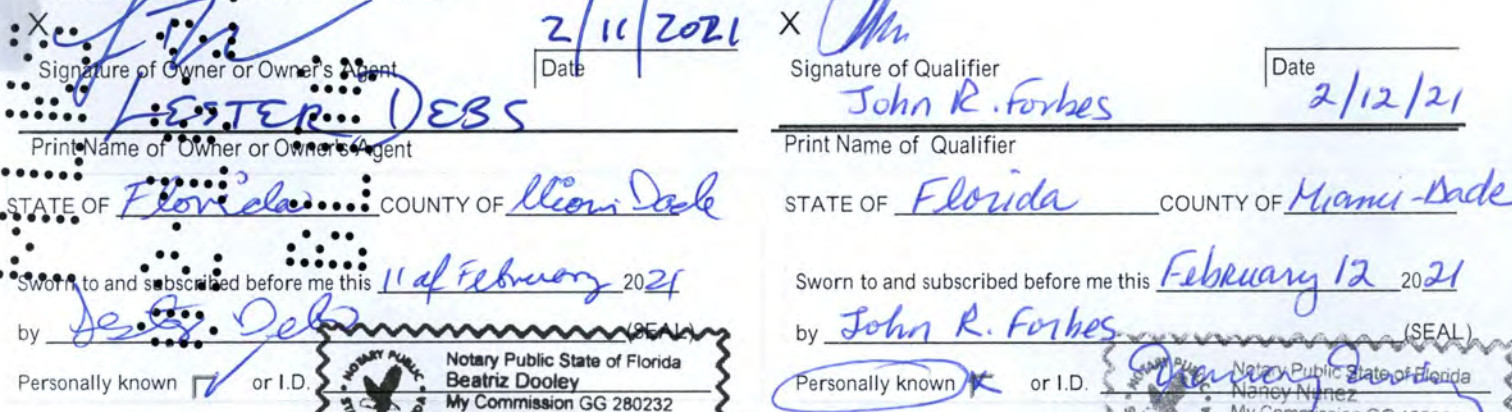 X 2/11/2021
Signature of Owner or Owner's Agent Date
LESTER DEBS
Print Name of Owner or Owner's Agent
STATE OF Florida COUNTY OF Miami Dade
Sworn to and subscribed before me this 11 of February 2021
by Lester Debs (SEAL)
Personally known or I.D.
NOTARY PUBLIC
Notary Public State of Florida
Beatriz Dooley
My Commission GG 280232
X
Signature of Qualifier Date
John R. Forbes 2/12/21
Print Name of Qualifier
STATE OF Florida COUNTY OF Miami-Dade
Sworn to and subscribed before me this February 12 2021
by John R. Forbes (SEAL)
Personally known X or I.D.
Notary Public State of Florida
Nancy Nunez
My Commission GG